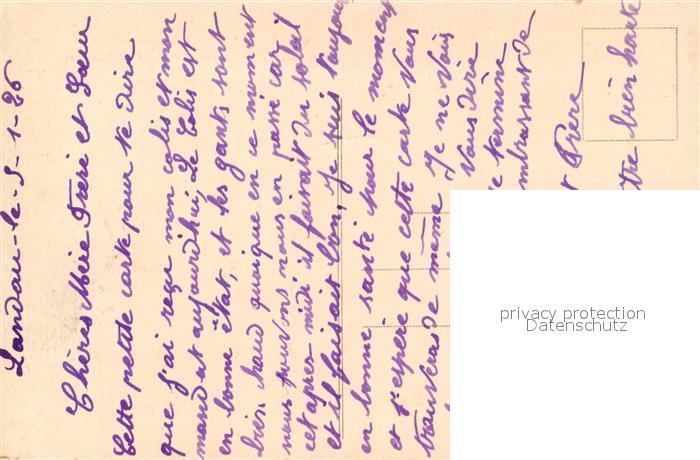 Landau - le 5-1-26
Chères Mère Frère et Sœur
Cette petite carte pour te dire
que j'ai reçu mon colis et mon
mandat aujourd'hui, Le Colis est
en bonne état, et les gants sont
bien chaud quoique en ce moment
nous pouvons nous en passé car
cet apres midi il faisait du soleil
et il faisait bon, Je suis toujours
en bonne santé pour le moment
et j'espère que cette carte vous
trouveras de même Je ne vois
Vous dire
Je termine
embrassant de
Frère
être bien sante
privacy protection
Datenschutz